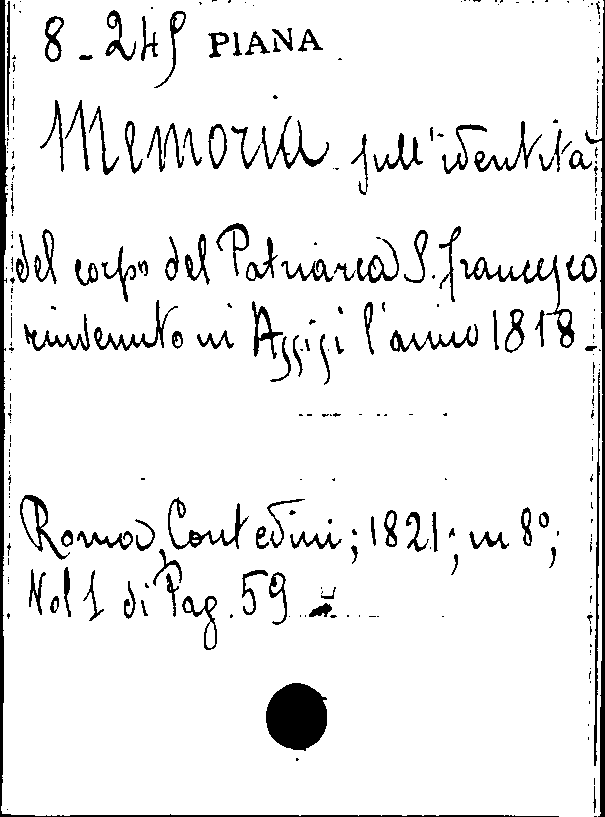 8-245 PIANA
Memoria sull'identità
del corpo del Patriarca S. Francesco
rinvenuto in Assisi l'anno 1818_
Roma, Contedini; 1821; in 8º;
Vol 1 di Pag. 59